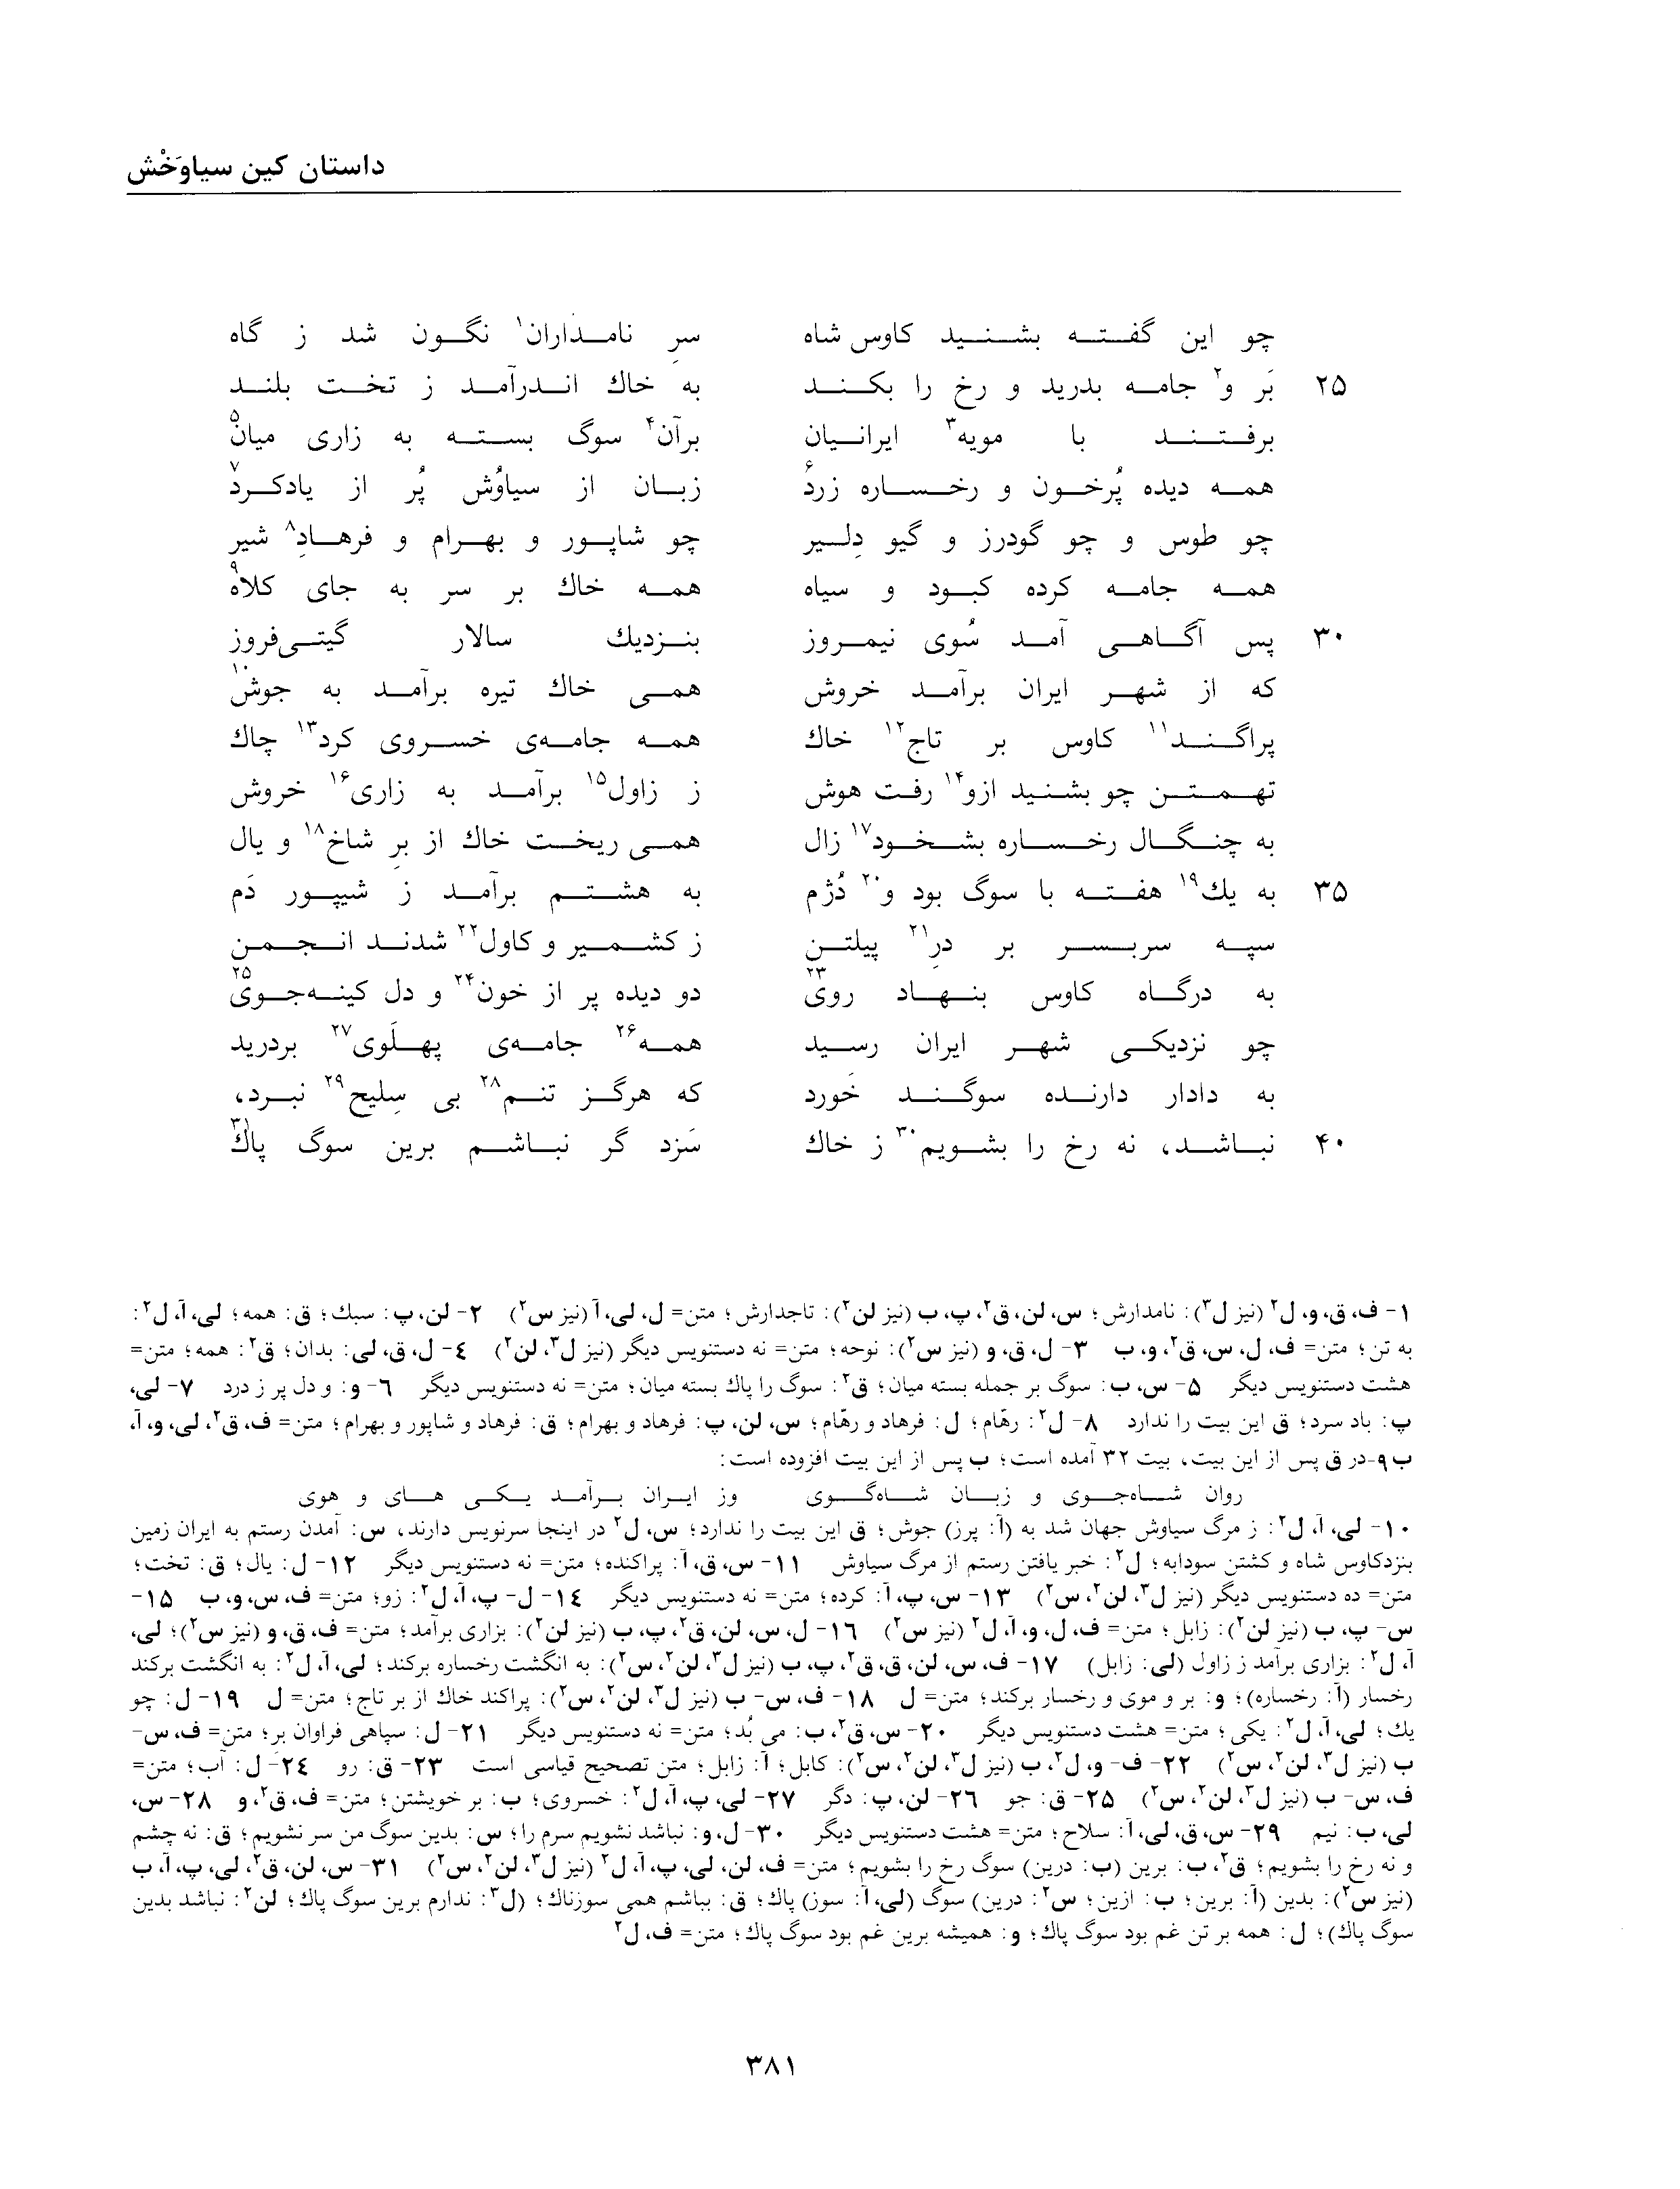 داستان کین سیاوَخْش
چو این گفته بشنید کاوس شاه سرِ نامداران۱ نگون شد ز گاه
۲۵ بَر و۲ جامه بدرید و رخ را بکند به خاك اندرآمد ز تخت بلند
برفتند با مویه۳ ایرانیان برآن۴ سوگ بسته به زاری میان۵
همه دیده پُرخون و رخساره زرد۶ زبان از سیاوُش پُر از یادکرد۷
چو طوس و چو گودرز و گیو دِلیر چو شاپور و بهرام و فرهادِ۸ شیر
همه جامه کرده کبود و سیاه همه خاك بر سر به جای کلاه۹
۳۰ پس آگاهی آمد سُوی نیمروز بنزدیك سالار گیتی‌فروز
که از شهر ایران برآمد خروش همی خاك تیره برآمد به جوش۱۰
پراگند۱۱ کاوس بر تاج۱۲ خاك همه جامه‌ی خسروی کرد۱۳ چاك
تهمتن چو بشنید ازو۱۴ رفت هوش ز زاول۱۵ برآمد به زاری۱۶ خروش
به چنگال رخساره بشخود۱۷ زال همی ریخت خاك از برِ شاخ۱۸ و یال
۳۵ به یك۱۹ هفته با سوگ بود و۲۰ دُژم به هشتم برآمد ز شیپور دَم
سپه سربسر بر درِ۲۱ پیلتن ز کشمیر و کاول۲۲ شدند انجمن
به درگاه کاوس بنهاد روی۲۳ دو دیده پر از خون۲۴ و دل کینه‌جوی۲۵
چو نزدیکی شهر ایران رسید همه۲۶ جامه‌ی پهلَوی۲۷ بردرید
به دادار دارنده سوگند خَورد که هرگز تنم۲۸ بی سِلیح۲۹ نبرد،
۴۰ نباشد، نه رخ را بشویم۳۰ ز خاك سَزد گر نباشم برین سوگ پاك۳۱
۱- ف، ق، و، ل۲ (نیز ل۳): نامدارش؛ س، لن، ق۲، پ، ب (نیز لن۲): تاجدارش؛ متن= ل، لی، آ (نیز س۲) ۲- لن، پ: سبك؛ ق: همه؛ لی، آ، ل۲:
به تن؛ متن= ف، ل، س، ق۲، و، ب ۳- ل، ق، و (نیز س۲): نوحه؛ متن= نه دستنویس دیگر (نیز ل۳، لن۲) ٤- ل، ق، لی: بدان؛ ق۲: همه؛ متن=
هشت دستنویس دیگر ۵- س، ب: سوگ بر جمله بسته میان؛ ق۲: سوگ را پاك بسته میان؛ متن= نه دستنویس دیگر ٦- و: و دل پر ز درد ۷- لی،
پ: باد سرد؛ ق این بیت را ندارد ۸- ل۲: رهّام؛ ل: فرهاد و رهّام؛ س، لن، پ: فرهاد و بهرام؛ ق: فرهاد و شاپور و بهرام؛ متن= ف، ق۲، لی، و، آ،
ب ۹-در ق پس از این بیت، بیت ۳۲ آمده است؛ ب پس از این بیت افزوده است:
روان شاه‌جوی و زبان شاه‌گوی وز ایران برآمد یکی های و هوی
۱۰- لی، آ، ل۲: ز مرگ سیاوش جهان شد به (آ: پرز) جوش؛ ق این بیت را ندارد؛ س، ل۲ در اینجا سرنویس دارند، س: آمدن رستم به ایران زمین
بنزدکاوس شاه و کشتن سودابه؛ ل۲: خبر یافتن رستم از مرگ سیاوش ۱۱- س، ق، آ: پراکنده؛ متن= نه دستنویس دیگر ۱۲- ل: یال؛ ق: تخت؛
متن= ده دستنویس دیگر (نیز ل۳، لن۲، س۲) ۱۳- س، پ، آ: کرده؛ متن= نه دستنویس دیگر ۱٤- ل- پ، آ، ل۲: زو؛ متن= ف، س، و، ب ۱۵-
س- پ، ب (نیز لن۲): زابل؛ متن= ف، ل، و، آ، ل۲ (نیز س۲) ۱٦- ل، س، لن، ق۲، پ، ب (نیز لن۲): بزاری برآمد؛ متن= ف، ق، و (نیز س۲)؛ لی،
آ، ل۲: بزاری برآمد ز زاول (لی: زابل) ۱۷- ف، س، لن، ق، ق۲، پ، ب (نیز ل۳، لن۲، س۲): به انگشت رخساره برکند؛ لی، آ، ل۲: به انگشت برکند
رخسار (آ: رخساره)؛ و: بر و موی و رخسار برکند؛ متن= ل ۱۸- ف، س- ب (نیز ل۳، لن۲، س۲): پراکند خاك از بر تاج؛ متن= ل ۱۹- ل: چو
یك؛ لی، آ، ل۲: یکی؛ متن= هشت دستنویس دیگر ۲۰- س، ق۲، ب: می بُد؛ متن= نه دستنویس دیگر ۲۱- ل: سپاهی فراوان بر؛ متن= ف، س-
ب (نیز ل۳، لن۲، س۲) ۲۲- ف- و، ل۲، ب (نیز ل۳، لن۲، س۲): کابل؛ آ: زابل؛ متن تصحیح قیاسی است ۲۳- ق: رو ۲٤- ل: آب؛ متن=
ف، س- ب (نیز ل۳، لن۲، س۲) ۲۵- ق: جو ۲٦- لن، پ: دگر ۲۷- لی، پ، آ، ل۲: خسروی؛ ب: بر خویشتن؛ متن= ف، ق۲، و ۲۸- س،
لی، ب: نیم ۲۹- س، ق، لی، آ: سلاح؛ متن= هشت دستنویس دیگر ۳۰- ل، و: نباشد نشویم سرم را؛ س: بدین سوگ من سر نشویم؛ ق: نه چشم
و نه رخ را بشویم؛ ق۲، ب: برین (ب: درین) سوگ رخ را بشویم؛ متن= ف، لن، لی، پ، آ، ل۲ (نیز ل۳، لن۲، س۲) ۳۱- س، لن، ق۲، لی، پ، آ، ب
(نیز س۲): بدین (آ: برین؛ ب: ازین؛ س۲: درین) سوگ (لی، آ: سوز) پاك؛ ق: بباشم همی سوزناك؛ (ل۳: ندارم برین سوگ پاك؛ لن۲: نباشد بدین
سوگ پاك)؛ ل: همه بر تن غم بود سوگ پاك؛ و: همیشه برین غم بود سوگ پاك؛ متن= ف، ل۲
۳۸۱